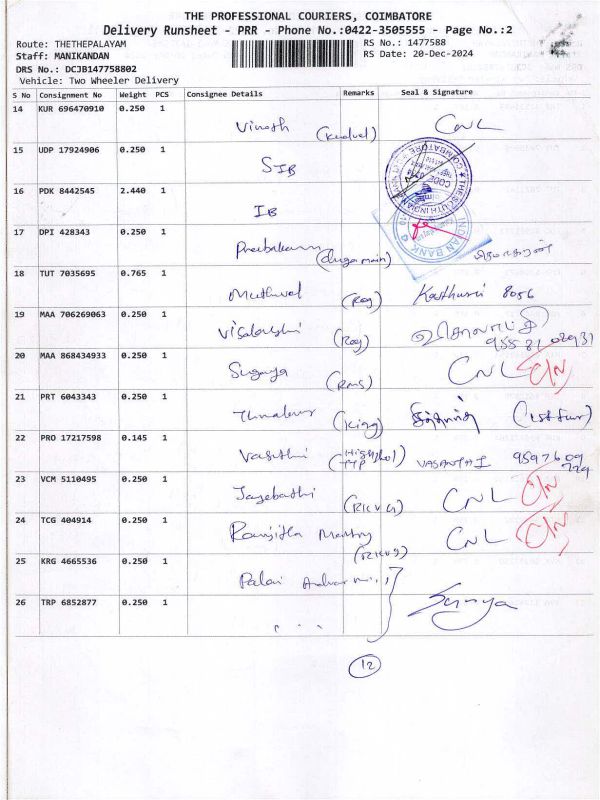 THE PROFESSIONAL COURIERS, COIMBATORE
Delivery Runsheet - PRR - Phone No.:0422-3505555 - Page No.:2
Route: THETHEPALAYAM RS No.: 1477588
Staff: MANIKANDAN RS Date: 20-Dec-2024
DRS No.: DCJB147758802
Vehicle: Two Wheeler Delivery
S No Consignment No Weight PCS Consignee Details Remarks Seal & Signature
14 KUR 696470910 0.250 1
Vinoth CNL
15 UDP 17924906 0.250 1
SIB
16 PDK 8442545 2.440 1
IB
INDIAN BANK
17 DPI 428343 0.250 1
18 TUT 7035695 0.765 1
Muthuvel (Ray) Kasthuri 8056
19 MAA 706269063 0.250 1
Visalakshi (Ray) விசாலாட்சி
95581 02931
20 MAA 868434933 0.250 1
Suganya (RMS) CNL C/N
21 PRT 6043343 0.250 1
(King) (1st fur)
22 PRO 17217598 0.145 1
Vasuthi VASANTHI 9597609
729
23 VCM 5110495 0.250 1
(RKVG) CNL C/N
24 TCG 404914 0.250 1
Ranjitha CNL C/N
(RKVG)
25 KRG 4665536 0.250 1
Palani
26 TRP 6852877 0.250 1
Saranya
12